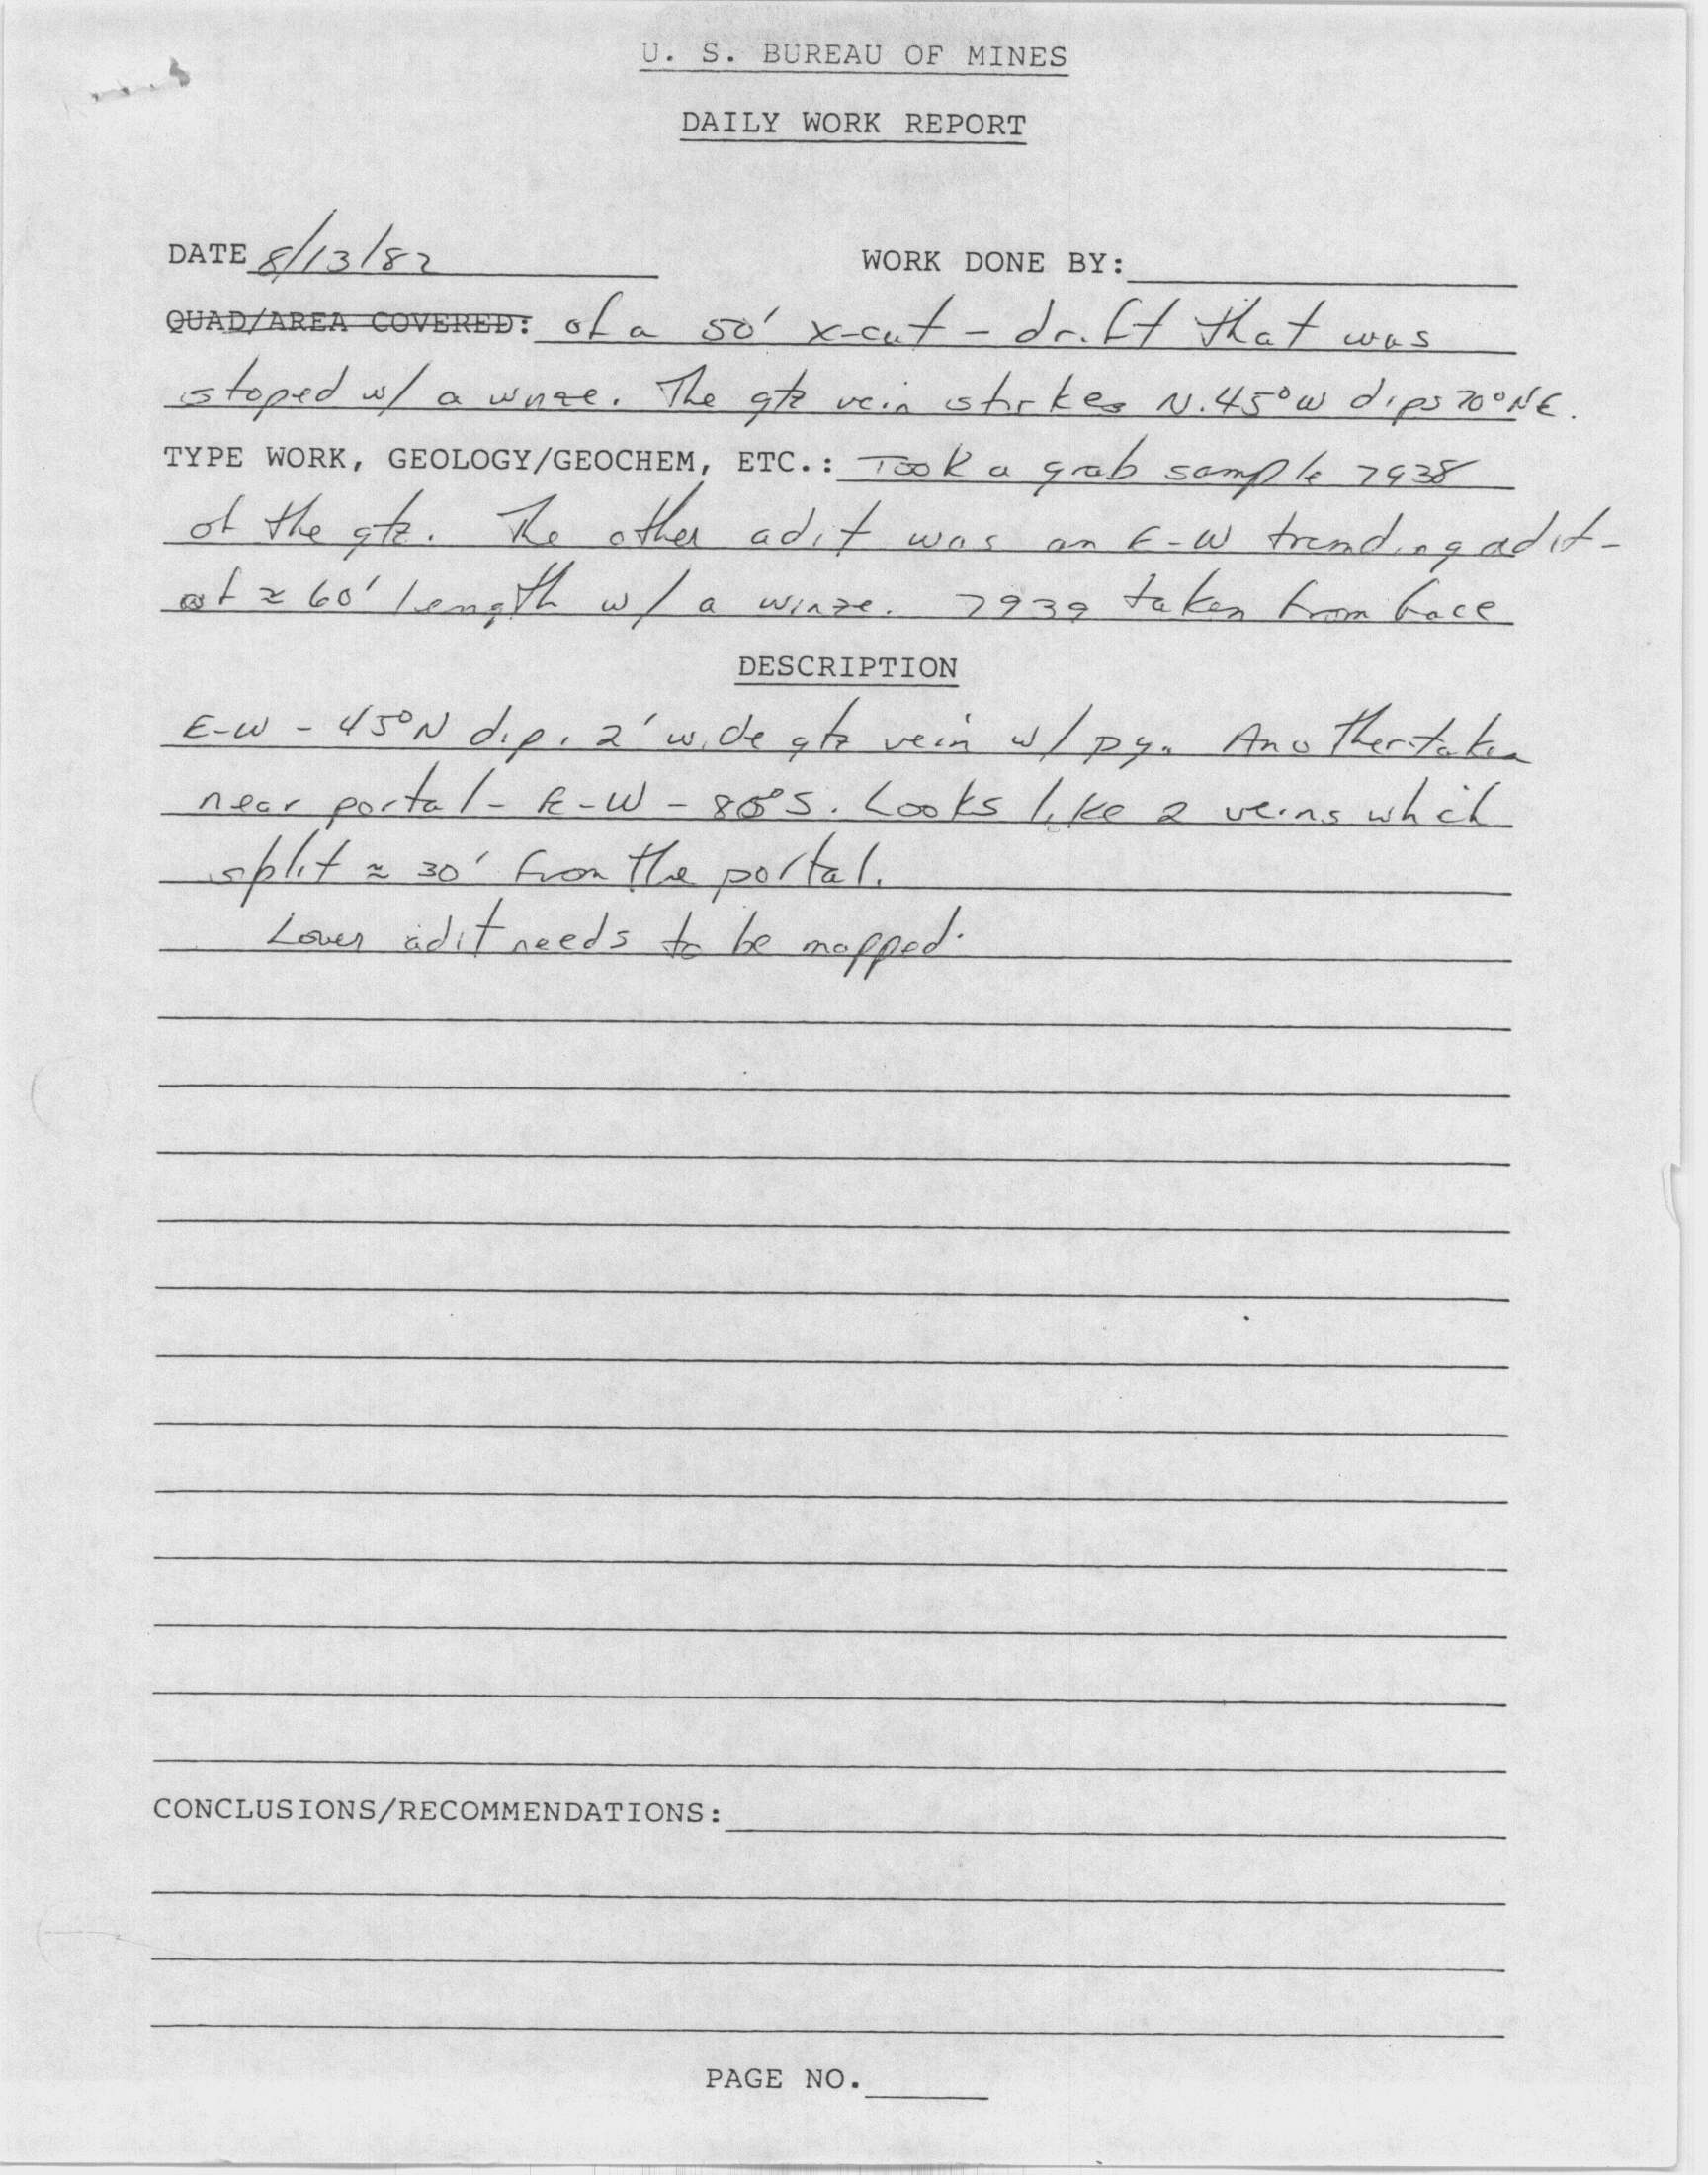 U. S. BUREAU OF MINES
DAILY WORK REPORT
DATE 8/13/82 WORK DONE BY:
QUAD/AREA COVERED: of a 50' x-cut - drift that was
stoped w/ a winze. The qtz vein strikes N.45°W dips 70°NE.
TYPE WORK, GEOLOGY/GEOCHEM, ETC.: Took a grab sample 7938
of the qtz. The other adit was an E-W trending adit-
of ≈ 60' length w/ a winze. 7939 taken from face
DESCRIPTION
E-W - 45°N dip. 2' wide qtz vein w/ py. Another taken
near portal - E-W - 80°S. Looks like 2 veins which
split ≈ 30' from the portal.
Lower adit needs to be mapped.
CONCLUSIONS/RECOMMENDATIONS:
PAGE NO.